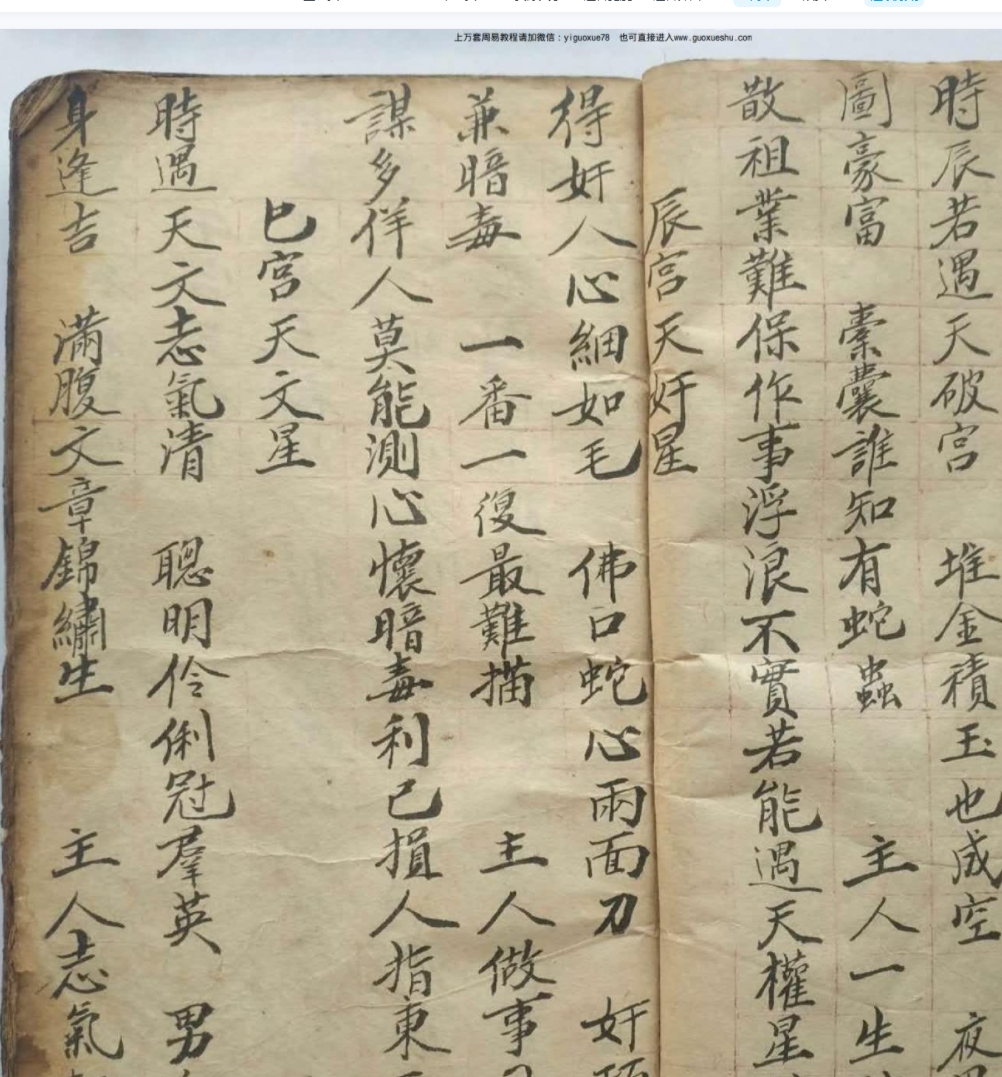 上万套周易教程请加微信：yiguoxue78 也可直接进入www.guoxueshu.com
時辰若遇天破宮 堆金積玉也成空 夜
圖豪富 橐囊誰知有蛇蟲 主人一生
散祖業難保作事浮浪不實若能遇天權星
辰宮天奸星
得奸人心細如毛 佛口蛇心兩面刀 奸
兼暗毒 一番一復最難描 主人做事
謀多佯人莫能測心懷暗毒利己損人指東
巳宮天文星
時遇天文志氣清 聰明伶俐冠羣英 男
身逢吉 滿腹文章錦繡生 主人志氣